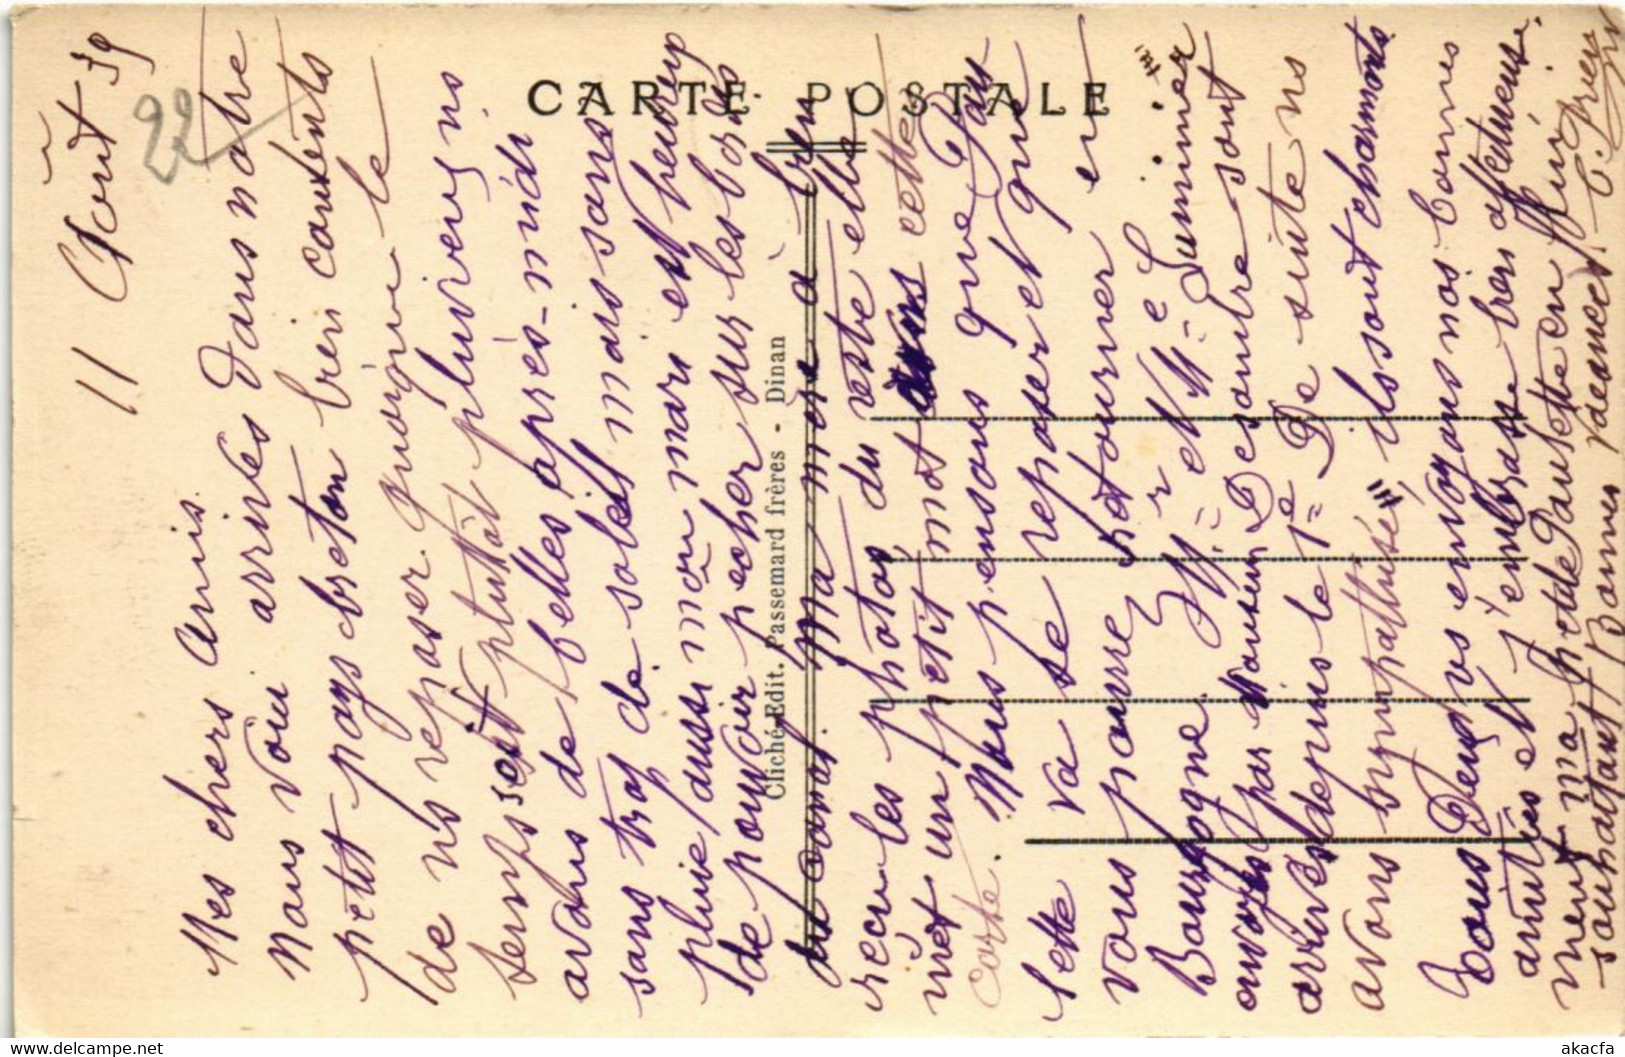 CARTE POSTALE
Cliché-Edit. Passemard frères - Dinan
22
11 Août 39
Mes chers amis.
Nous voici arrivés dans notre
petit pays breton bien contents
de ns reposer quoique le
temps soit plutôt pluvieux, ns
avons de belles après-midi
sans trop de soleil mais sans
pluie, aussi mon mari est heureux
de pouvoir pecher sur les bords
du canal. Ma mère a bien
recu les photos, du reste elle
met un petit mot dans cette
carte. Nous pensons que Paulette
va se reposer et que
vous pourrez retourner en
Bourgogne. Mr et Me L
envoyés par Maurin Desombre sont
arrivés depuis le 1e De suite ns
avons sympathisé, ils sont charmants
Tous Deux vs envoyons nos bonnes
amitiés et j'embrasse bien affectueuse
ment ma petite Paulette en lui
souhaitant bonnes vacances.